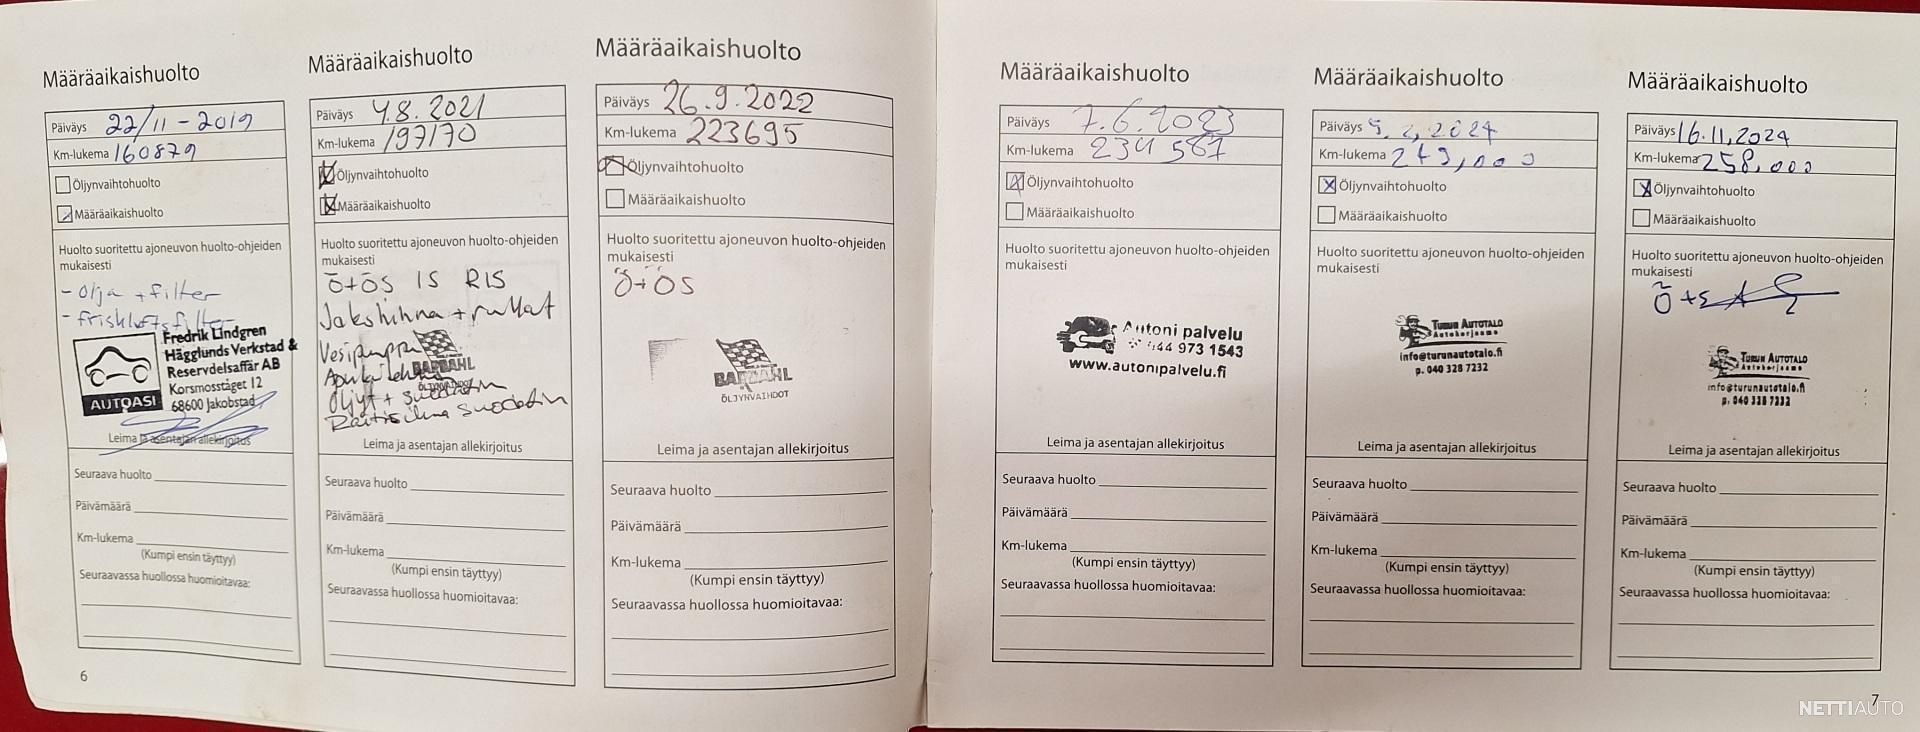 Määräaikaishuolto
Päiväys 22/11-2019
Km-lukema 160879
Öljynvaihtohuolto
Määräaikaishuolto
Huolto suoritettu ajoneuvon huolto-ohjeiden
mukaisesti
- olja + filter
- friskluftsfilter
Fredrik Lindgren
Hägglunds Verkstad &
Reservdelsaffär AB
Korsmosståget 12
68600 Jakobstad
AUTOASI
Leima ja asentajan allekirjoitus
Seuraava huolto
Päivämäärä
Km-lukema
(Kumpi ensin täyttyy)
Seuraavassa huollossa huomioitavaa:
6
Määräaikaishuolto
Päiväys 4.8.2021
Km-lukema 197170
Öljynvaihtohuolto
Määräaikaishuolto
Huolto suoritettu ajoneuvon huolto-ohjeiden
mukaisesti
Ö+ÖS IS RIS
Jakohihna + rullat
Vesipumppu
BARDAHL
ÖLJYNVAIHDOT
Öljyt + suodatin
Raitisilma suodatin
Leima ja asentajan allekirjoitus
Seuraava huolto
Päivämäärä
Km-lukema
(Kumpi ensin täyttyy)
Seuraavassa huollossa huomioitavaa:
Määräaikaishuolto
Päiväys 26.9.2022
Km-lukema 223695
Öljynvaihtohuolto
Määräaikaishuolto
Huolto suoritettu ajoneuvon huolto-ohjeiden
mukaisesti
Ö+ÖS
BARDAHL
ÖLJYNVAIHDOT
Leima ja asentajan allekirjoitus
Seuraava huolto
Päivämäärä
Km-lukema
(Kumpi ensin täyttyy)
Seuraavassa huollossa huomioitavaa:
Määräaikaishuolto
Päiväys 7.6.2023
Km-lukema 234587
Öljynvaihtohuolto
Määräaikaishuolto
Huolto suoritettu ajoneuvon huolto-ohjeiden
mukaisesti
Autoni palvelu
044 973 1543
www.autonipalvelu.fi
Leima ja asentajan allekirjoitus
Seuraava huolto
Päivämäärä
Km-lukema
(Kumpi ensin täyttyy)
Seuraavassa huollossa huomioitavaa:
Määräaikaishuolto
Päiväys 5.2,2024
Km-lukema 249,000
Öljynvaihtohuolto
Määräaikaishuolto
Huolto suoritettu ajoneuvon huolto-ohjeiden
mukaisesti
TURUN AUTOTALO
Autokorjaamo
info@turunautotalo.fi
p. 040 328 7232
Leima ja asentajan allekirjoitus
Seuraava huolto
Päivämäärä
Km-lukema
(Kumpi ensin täyttyy)
Seuraavassa huollossa huomioitavaa:
Määräaikaishuolto
Päiväys 16.11,2024
Km-lukema 258,000
Öljynvaihtohuolto
Määräaikaishuolto
Huolto suoritettu ajoneuvon huolto-ohjeiden
mukaisesti
Ö+S
TURUN AUTOTALO
Autokorjaamo
info@turunautotalo.fi
p. 040 328 7232
Leima ja asentajan allekirjoitus
Seuraava huolto
Päivämäärä
Km-lukema
(Kumpi ensin täyttyy)
Seuraavassa huollossa huomioitavaa:
7
NETTIAUTO